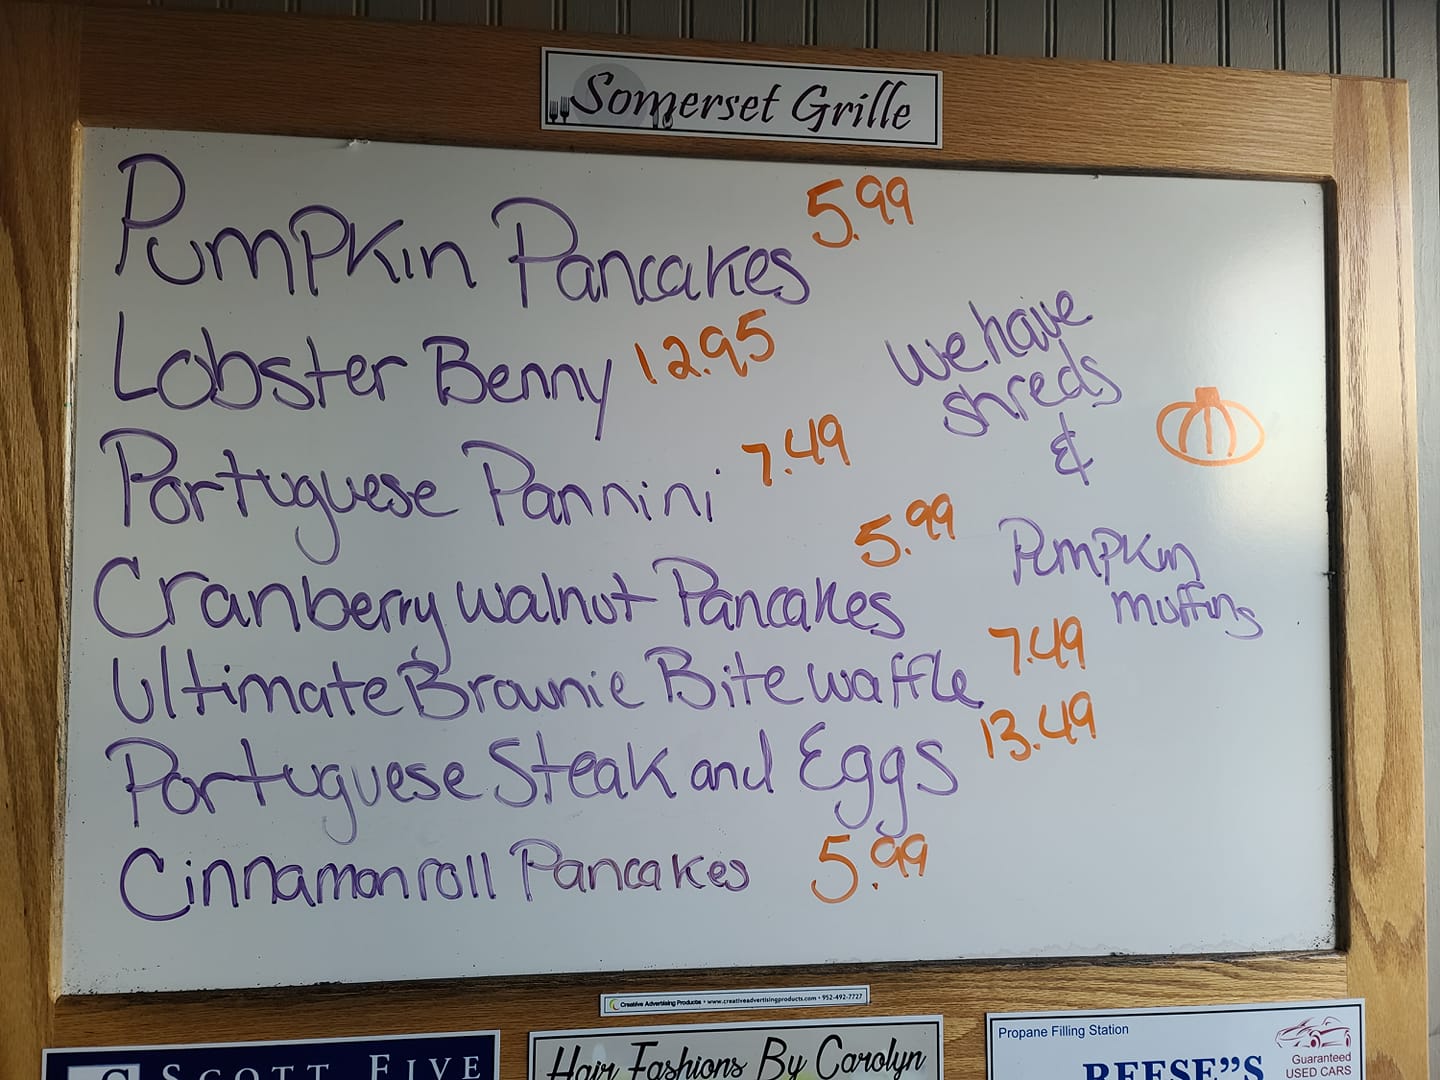 Somerset Grille
Pumpkin Pancakes 5.99
Lobster Benny 12.95
Portuguese Pannini 7.49
Cranberry walnut Pancakes 5.99
Ultimate Brownie Bite waffle 7.49
Portuguese Steak and Eggs 13.49
Cinnamonroll Pancakes 5.99
we have
shreds
&
Pumpkin
muffins
Creative Advertising Products • www.creativeadvertisingproducts.com • 952-492-7727
SCOTT FIVE
Hair Fashions By Carolyn
Propane Filling Station
REESE"S
Guaranteed
USED CARS